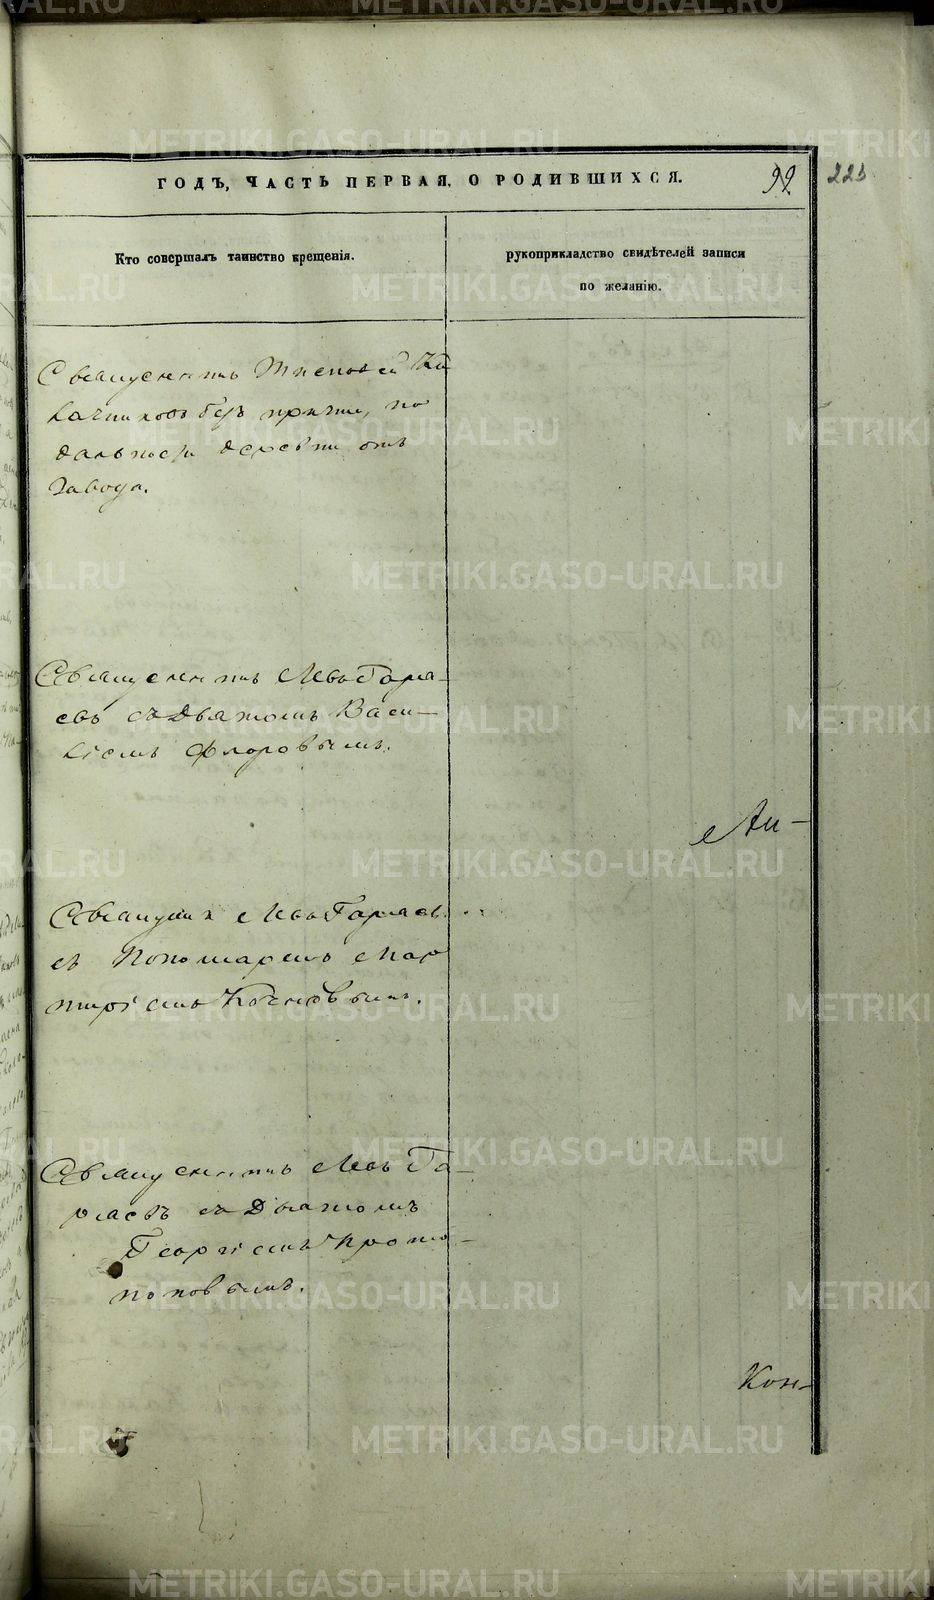 ГОДЪ, ЧАСТЬ ПЕРВАЯ, О РОДИВШИХСЯ.
99
223
Кто совершалъ таинство крещенія.
рукоприкладство свидѣтелей записи
по желанію.
Священникъ
безъ причта, по
дальности деревни отъ
Завода.
Священникъ Левъ Гаря-
евъ съ Дьякономъ Васи-
ліемъ Флоровымъ.
Ан-
Священникъ Левъ Гаряевъ
съ Пономаремъ Мар
тиріемъ
Священникъ Левъ Га-
ряевъ съ Дьякономъ
Георгіемъ Прото-
поповымъ.
Кон-
METRIKI.GASO-URAL.RU